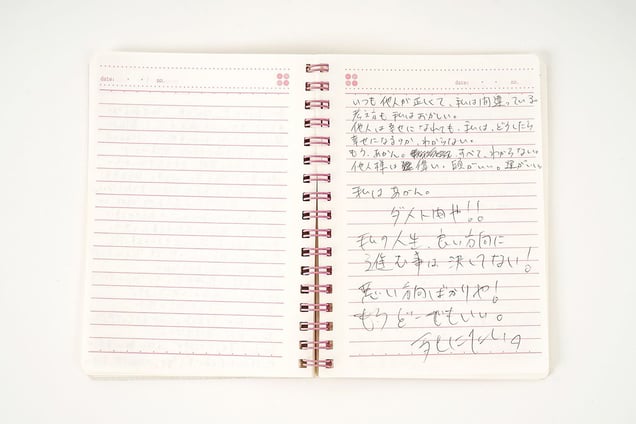 date: ・ ・ no.
date: ・ ・ no.
いつも他人が正しくて、私は間違っている
考え方も私はおかしい。
他人は幸せになれても、私は、どうしたら
幸せになるのか、わからない。
もう、あかん。すべて、わからない。
他人様は偉い、頭がいい。運がいい。
私はあかん。
ダメト肉や!!
私の人生、良い方向に
進む事は決してない!
悪い方向ばかりや!
もうどーでもいい。
死にたい。